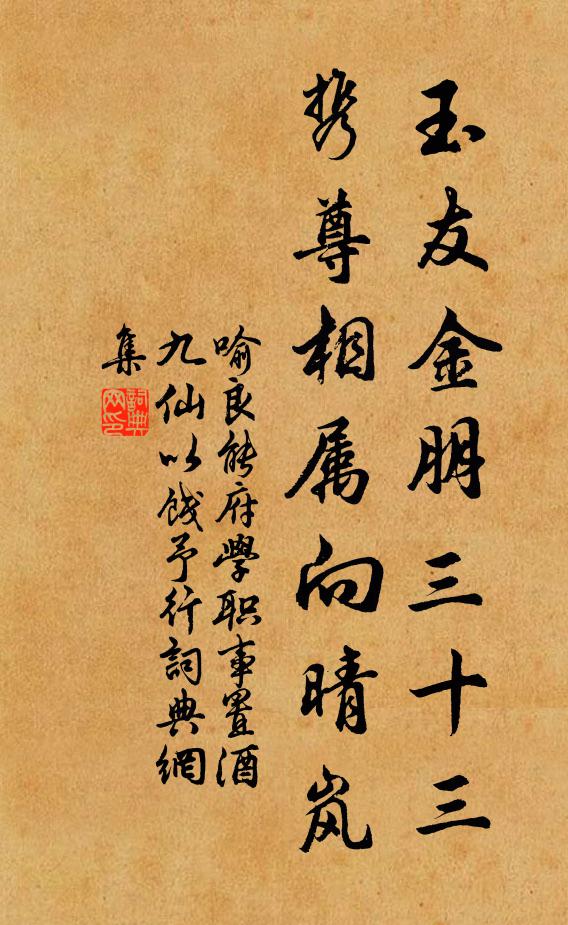 玉友金朋三十三
携尊相属向晴岚
喻良能府學职事置酒
九仙以饯予行詞典網
集
詞典网印